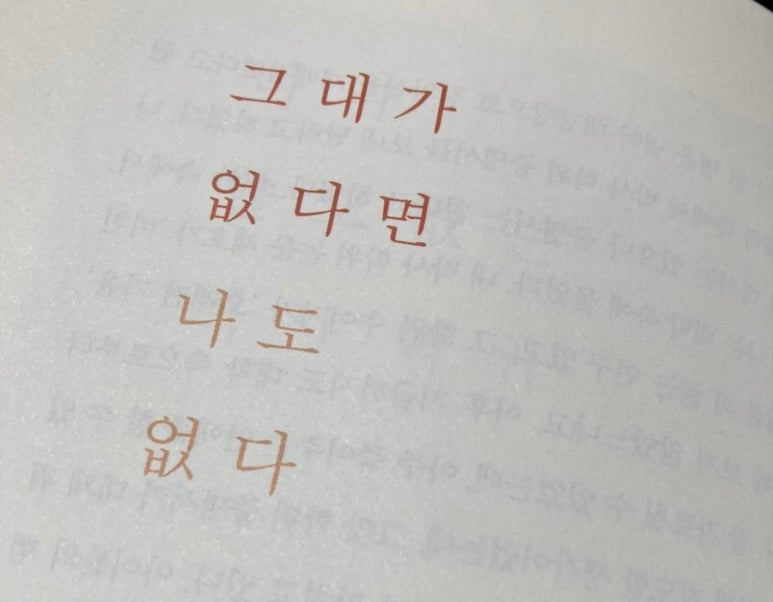 그대가
없다면
나도
없다